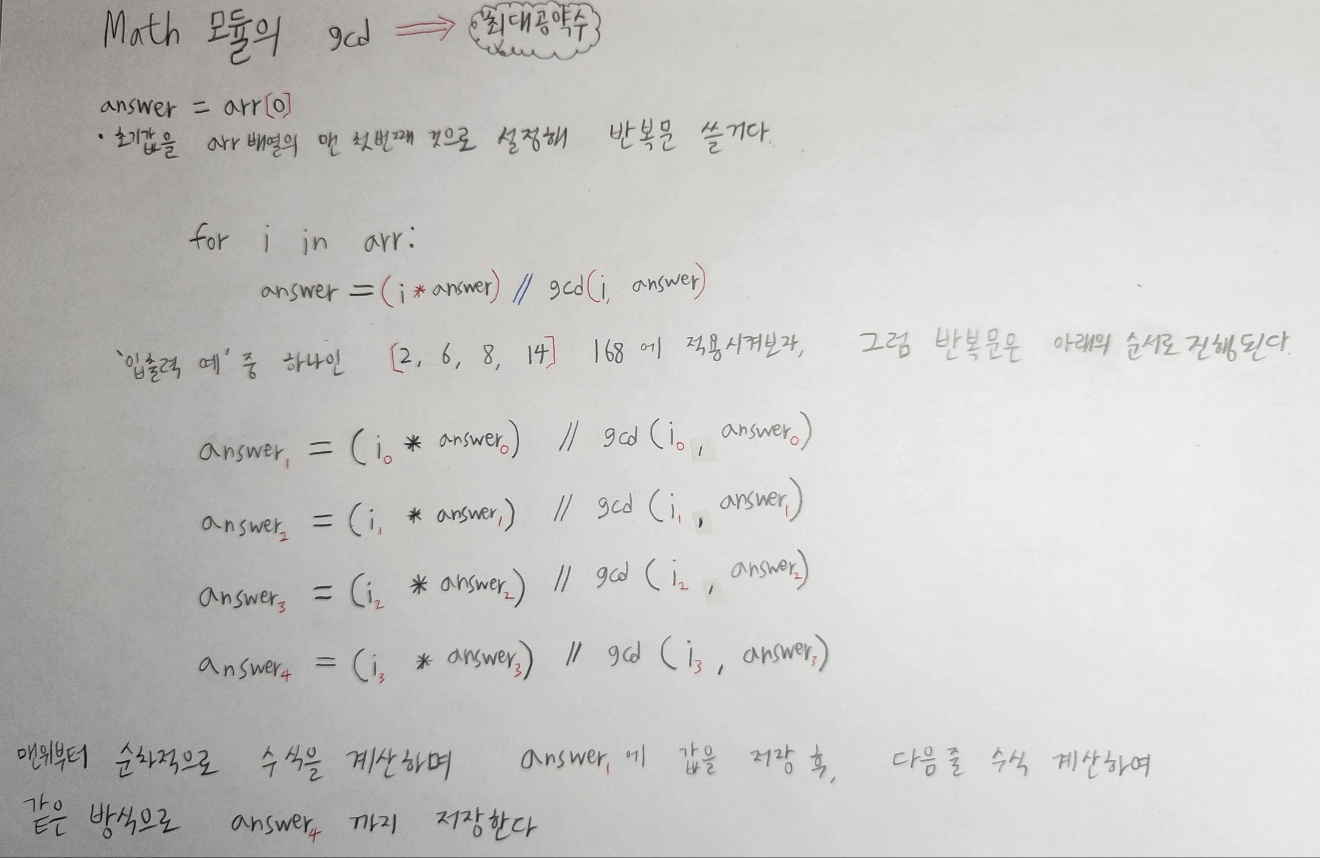 Math 모듈의 gcd ⟹ 최대공약수
answer = arr[0]
· 초기값을 arr배열의 맨 첫번째 것으로 설정해 반복문 쓸거다.
for i in arr:
answer = (i * answer) // gcd(i, answer)
'입출력 예' 중 하나인 [2, 6, 8, 14] 168 에 적용시켜보자, 그럼 반복문은 아래의 순서로 진행된다.
answer₁ = (i₀ * answer₀) // gcd (i₀, answer₀)
answer₂ = (i₁ * answer₁) // gcd (i₁, answer₁)
answer₃ = (i₂ * answer₂) // gcd (i₂, answer₂)
answer₄ = (i₃ * answer₃) // gcd (i₃, answer₃)
맨위부터 순차적으로 수식을 계산하며 answer₁에 값을 저장 후, 다음줄 수식 계산하여
같은 방식으로 answer₄ 까지 저장한다